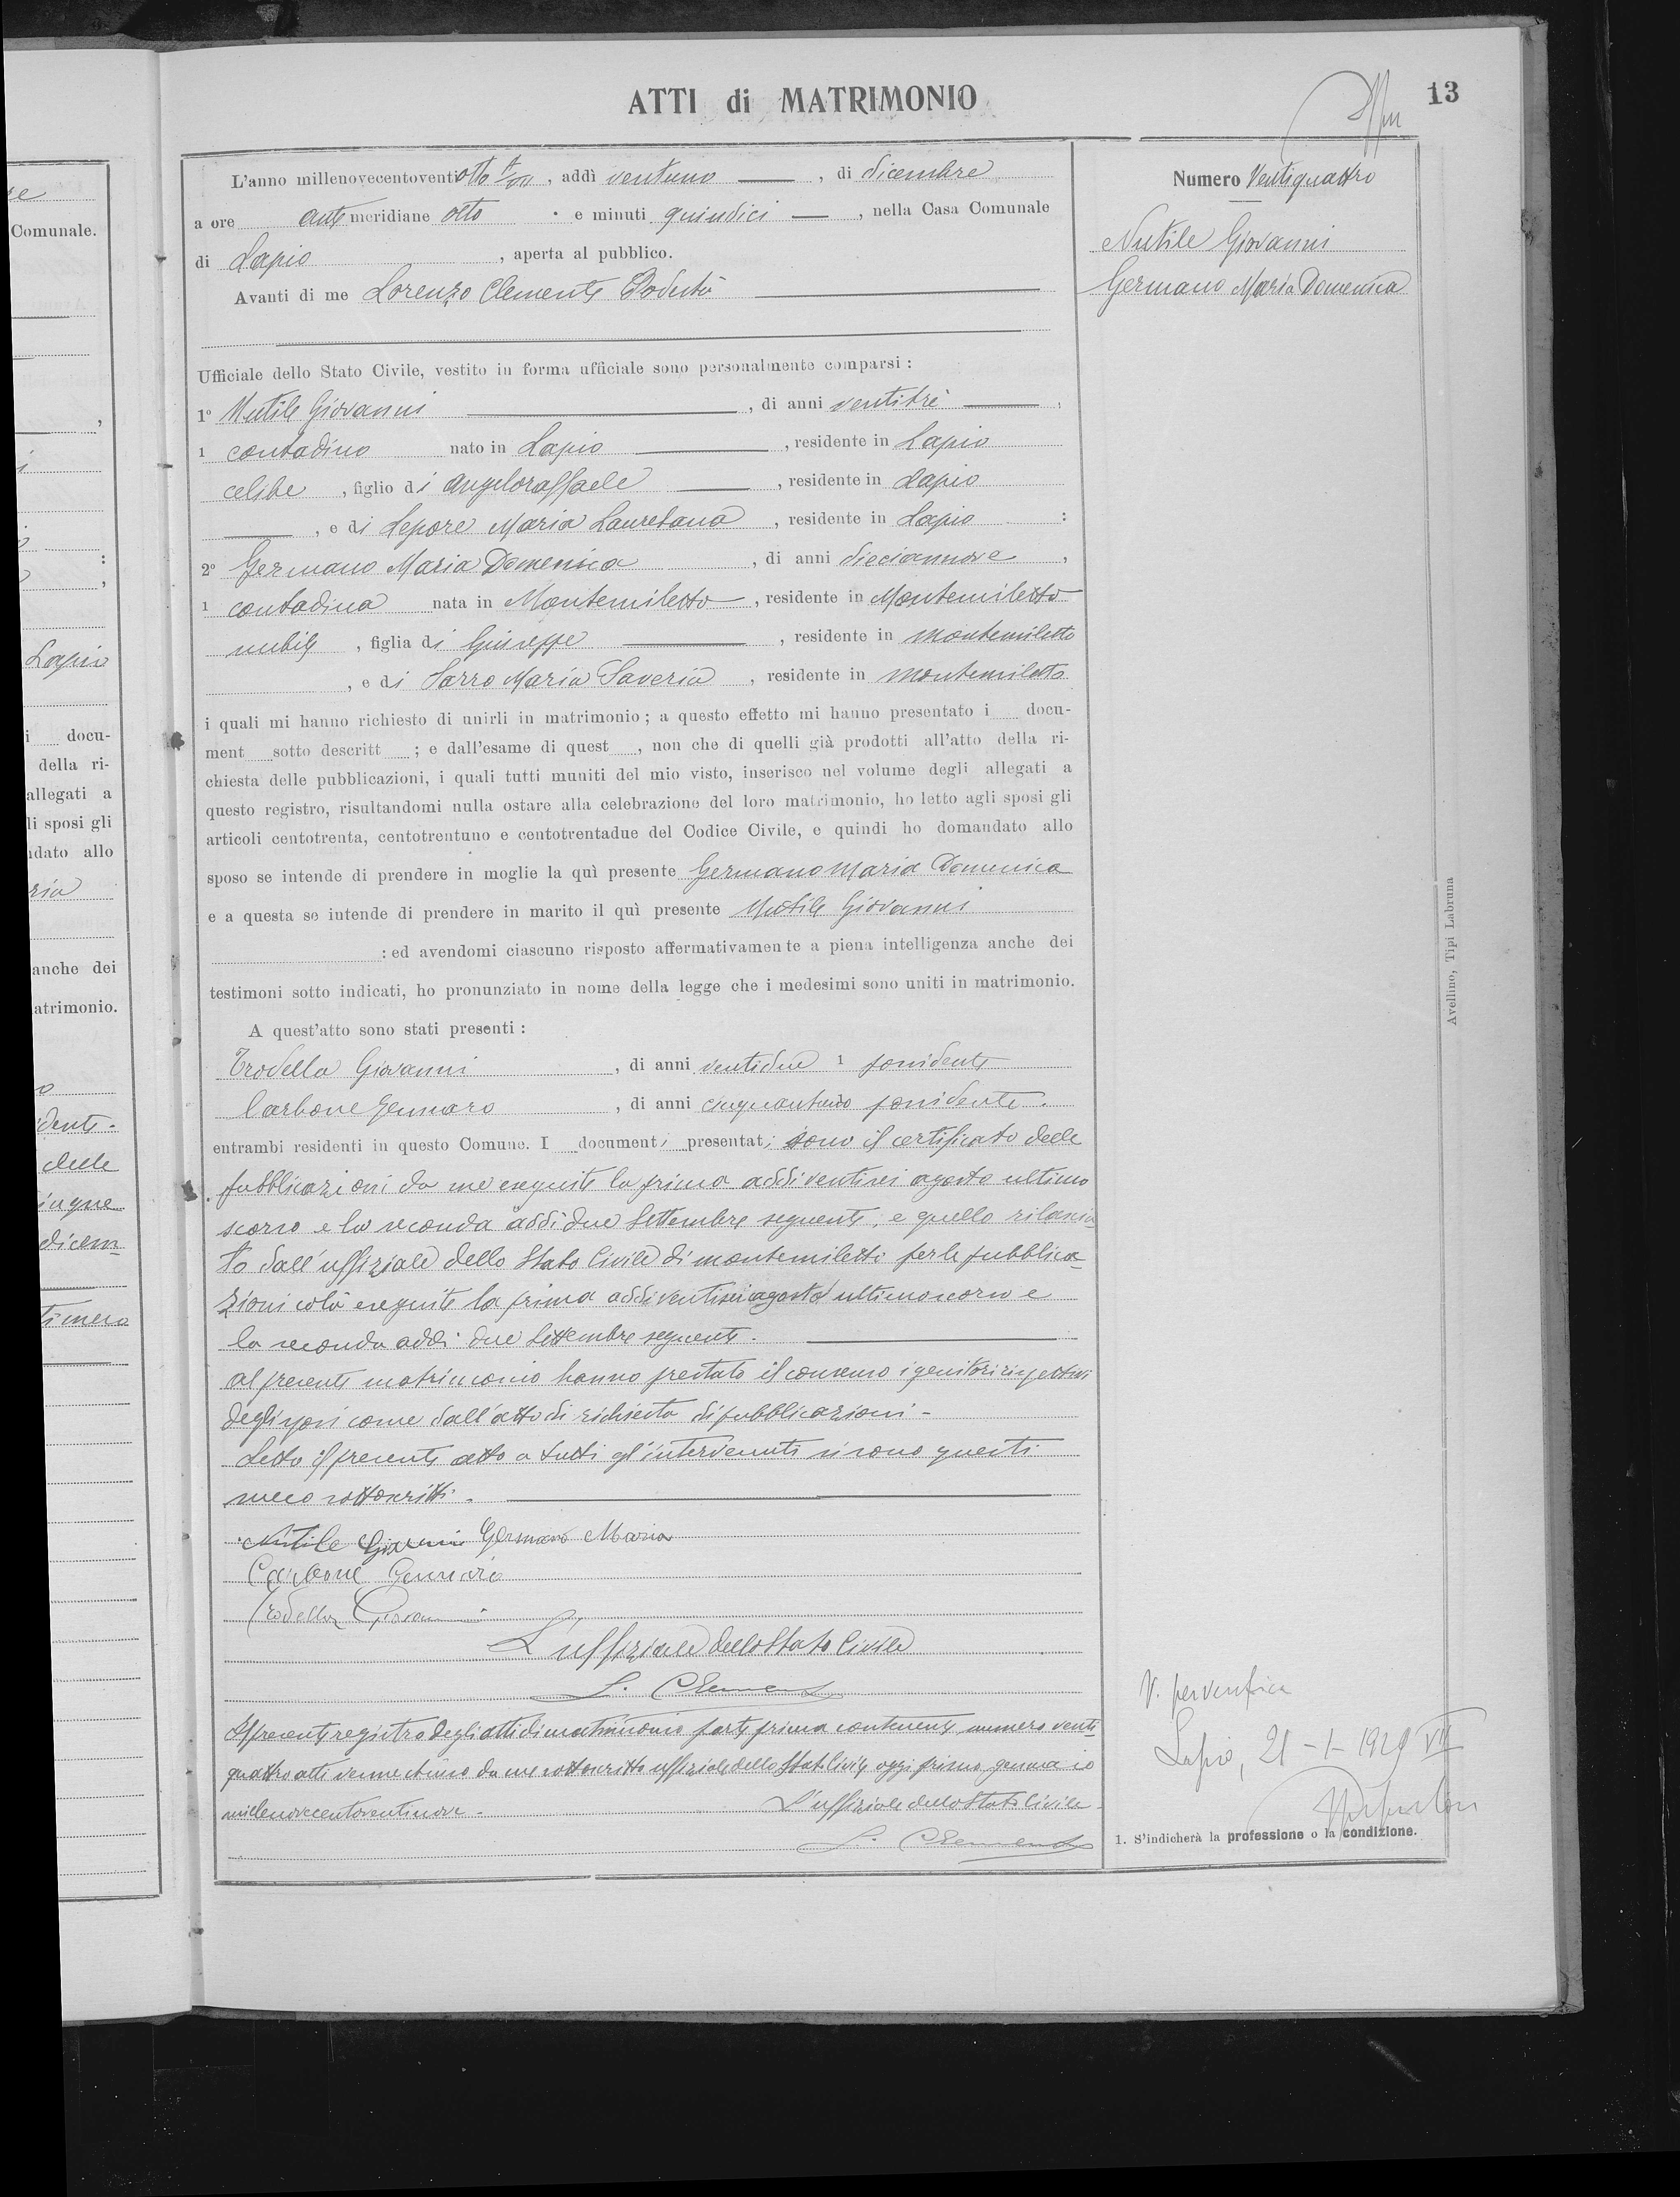 ATTI di MATRIMONIO
13
L'anno millenovecentoventiotto A. VII, addì ventuno, di dicembre
a ore antimeridiane otto e minuti quindici, nella Casa Comunale
di Lapio, aperta al pubblico.
Avanti di me Lorenzo Clemente Podestà
Ufficiale dello Stato Civile, vestito in forma ufficiale sono personalmente comparsi:
1° Nutile Giovanni, di anni ventitrè,
1 contadino nato in Lapio, residente in Lapio
celibe, figlio di Angeloraffaele, residente in Lapio
, e di Lepore Maria Lauretana, residente in Lapio :
2° Germano Maria Domenica, di anni diciannove,
1 contadina nata in Montemiletto, residente in Montemiletto
nubile, figlia di Giuseppe, residente in Montemiletto
, e di Sarro Maria Saveria, residente in Montemiletto
i quali mi hanno richiesto di unirli in matrimonio; a questo effetto mi hanno presentato i docu-
ment sotto descritt ; e dall'esame di quest , non che di quelli già prodotti all'atto della ri-
chiesta delle pubblicazioni, i quali tutti muniti del mio visto, inserisco nel volume degli allegati a
questo registro, risultandomi nulla ostare alla celebrazione del loro matrimonio, ho letto agli sposi gli
articoli centotrenta, centotrentuno e centotrentadue del Codice Civile, e quindi ho domandato allo
sposo se intende di prendere in moglie la quì presente Germano Maria Domenica
e a questa se intende di prendere in marito il quì presente Nutile Giovanni
: ed avendomi ciascuno risposto affermativamente a piena intelligenza anche dei
testimoni sotto indicati, ho pronunziato in nome della legge che i medesimi sono uniti in matrimonio.
A quest'atto sono stati presenti:
Trodella Giovanni, di anni ventidue 1 possidente
Carbone Gennaro, di anni possidente.
entrambi residenti in questo Comune. I documenti presentati sono il certificato delle
pubblicazioni da me eseguite la prima addì ventisei agosto ultimo
scorso e la seconda addì due Settembre seguente, e quello rilascia
to dall'uffiziale dello Stato Civile di Montemiletto per le pubblica-
zioni colà eseguite la prima addì ventisei agosto ultimo scorso e
la seconda addì due Settembre seguente.
Al presente matrimonio hanno prestato il consenso i genitori rispettivi
degli sposi come dall'atto di richiesta di pubblicazioni-
Letto il presente atto a tutti gl'intervenuti si sono questi
meco sottoscritti.
Nutile Giovanni Germano Maria
Carbone Gennaro
Trodella Giovanni
L'uffiziale dello Stato Civile
L. Clemente
Il presente registro degli atti di matrimonio parte prima contenente numero venti
quattro atti venne chiuso da me sottoscritto uffiziale dello Stato Civile oggi primo gennaio
millenovecentoventinove. L'uffiziale dello Stato Civile
L. Clemente
Numero Ventiquattro
Nutile Giovanni
Germano Maria Domenica
V. per verifica
Lapio, 21-1-1929 VII
1. S'indicherà la professione o la condizione.
Avellino, Tipi Labruna
re
Comunale.
Lapio
i docu-
della ri-
allegati a
li sposi gli
ndato allo
ria
anche dei
atrimonio.
idente.
delle
inque
dicem